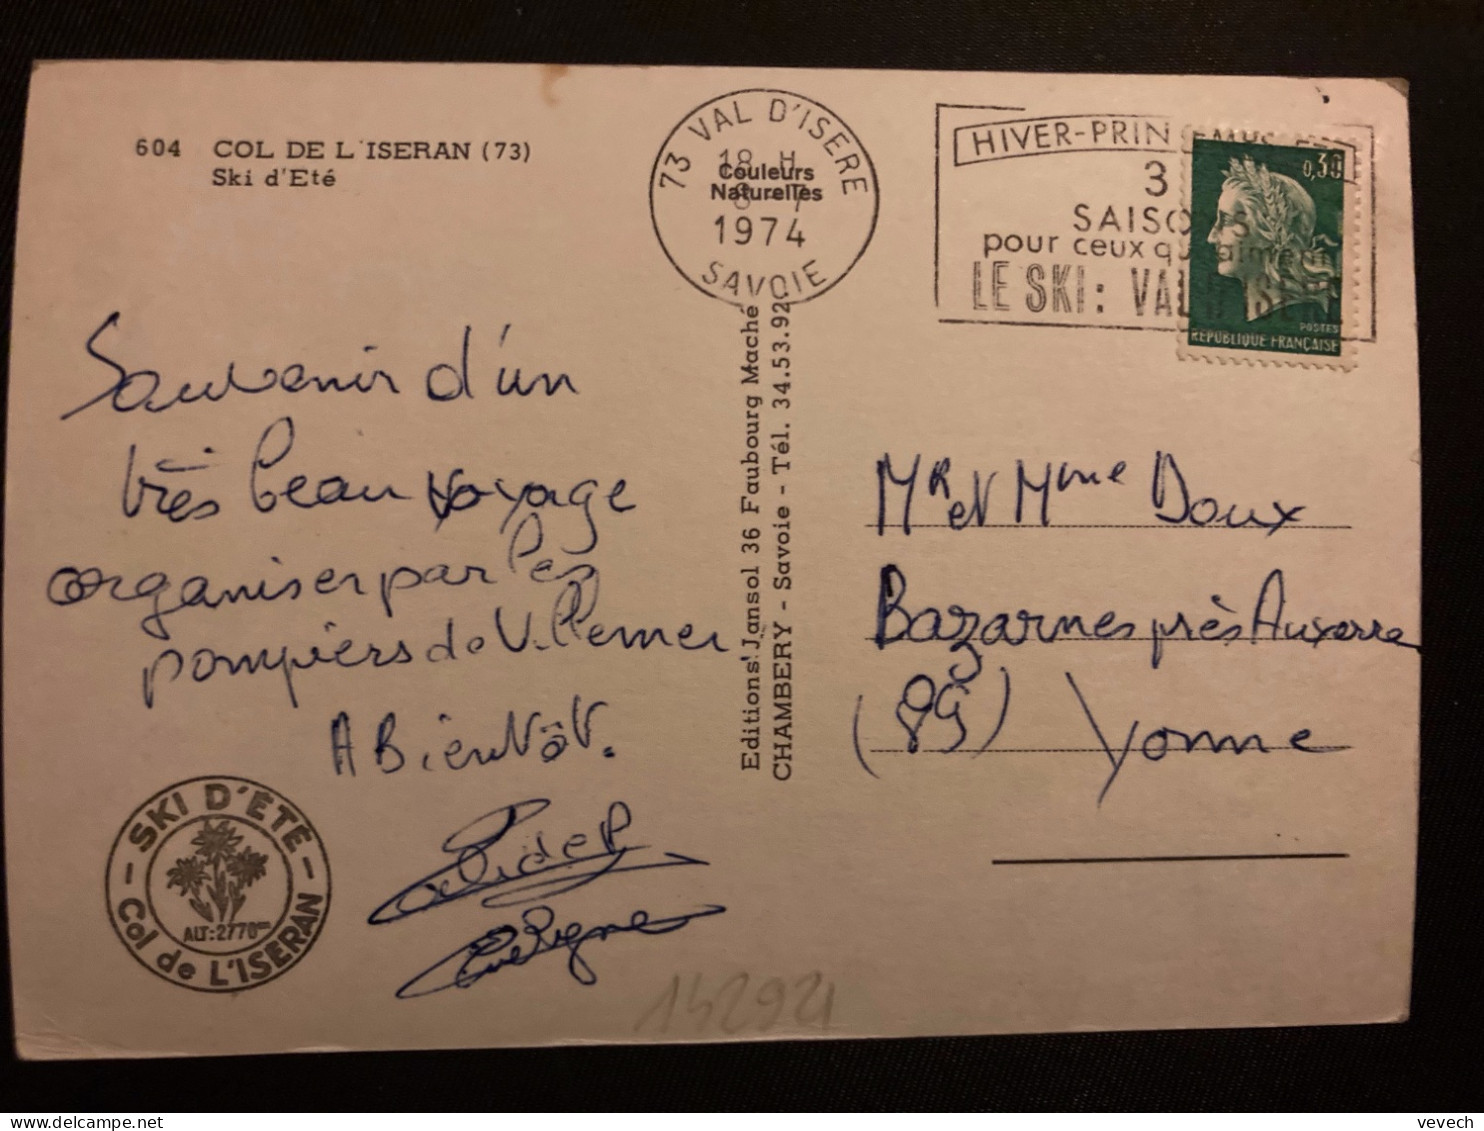 604 COL DE L'ISERAN (73)
Ski d'Eté
73 VAL D'ISERE
18 H
Couleurs
Naturelles
1974
SAVOIE
HIVER-PRINTEMPS
3
SAISONS
pour ceux qui aiment
LE SKI: VAL D'ISERE
0,30
POSTES
REPUBLIQUE FRANÇAISE
Souvenir d'un
très beau voyage
organiser par les
pompiers de Villemer
A Bientôt.
Editions Jansol 36 Faubourg Mache
CHAMBERY - Savoie - Tél. 34.53.92
Mr et Mme Doux
Bazarnes près Auxerre
(89) Yonne
SKI D'ÉTÉ
ALT: 2770m
Col de L'ISERAN
vevech